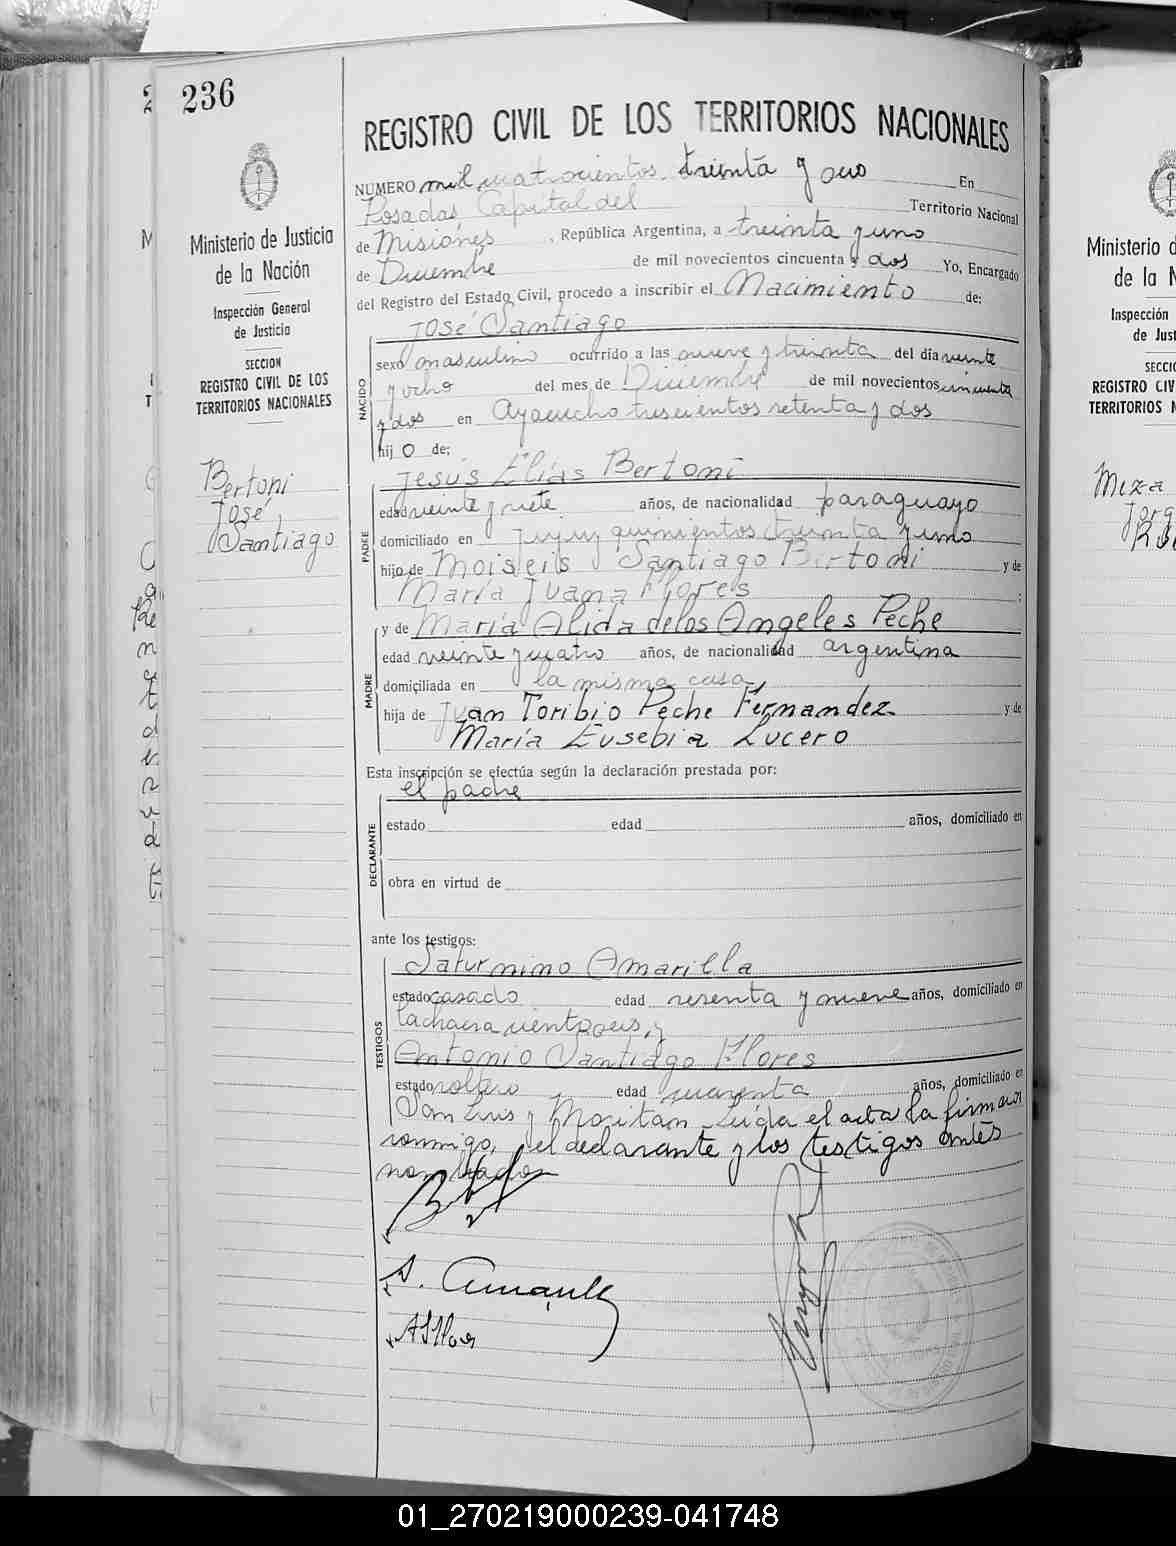 236
REGISTRO CIVIL DE LOS TERRITORIOS NACIONALES
Ministerio de Justicia
de la Nación
Inspección General
de Justicia
SECCION
REGISTRO CIVIL DE LOS
TERRITORIOS NACIONALES
Bertoni
José
Santiago
NUMERO mil cuatrocientos treinta y En
Posadas Capital del Territorio Nacional
de Misiónes, República Argentina, a treinta y uno
de Diciembre de mil novecientos cincuenta y dos Yo, Encargado
del Registro del Estado Civil, procedo a inscribir el Nacimiento de:
José Santiago
NACIDO
sexo masculino ocurrido a las nueve y treinta del día veinte
y ocho del mes de Diciembre de mil novecientos cincuenta
y dos en Ayacucho trescientos setenta y dos
hijo de:
Jesús Elías Bertoni
PADRE
edad veinte y siete años, de nacionalidad paraguayo
domiciliado en Jujuy quinientos treinta y uno
hijo de Moiseis Santiago Bertoni y de
María Juana Flores ;
y de María Alida de los Angeles Peche
MADRE
edad veinte y cuatro años, de nacionalidad argentina
domiciliada en la misma casa,
hija de Juan Toribio Peche Fernandez y de
María Eusebia Lucero
Esta inscripción se efectúa según la declaración prestada por:
el padre
DECLARANTE
estado edad años, domiciliado en
obra en virtud de
ante los testigos:
Saturnino Amarilla
TESTIGOS
estado casado edad sesenta y nueve años, domiciliado en
la chacra ciento seis, y
Antonio Santiago Flores
estado soltero edad cuarenta años, domiciliado en
San Luis y Moritan Leida el acta la firman
conmigo, el declarante y los testigos antes
nombrados
S. Amarilla
ASFlores
Ministerio d
de la N
Inspección
de Just
SECCI
REGISTRO CIV
TERRITORIOS N
Meza
Jorg
01_270219000239-041748